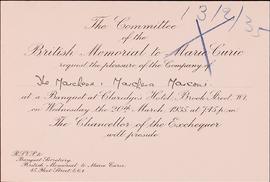 13/2/35
The Committee
of the
British Memorial to Marie Curie
request the pleasure of the Company of
The Marchese & Marchesa Marconi
at a Banquet at Claridge's Hotel, Brook Street, W.1.
on Wednesday the 20th March, 1935 at 7.45 p.m.
The Chancellor of the Exchequer
will preside
R.S.V.P. to
Banquet Secretary,
British Memorial to Marie Curie,
Street, E.C.4